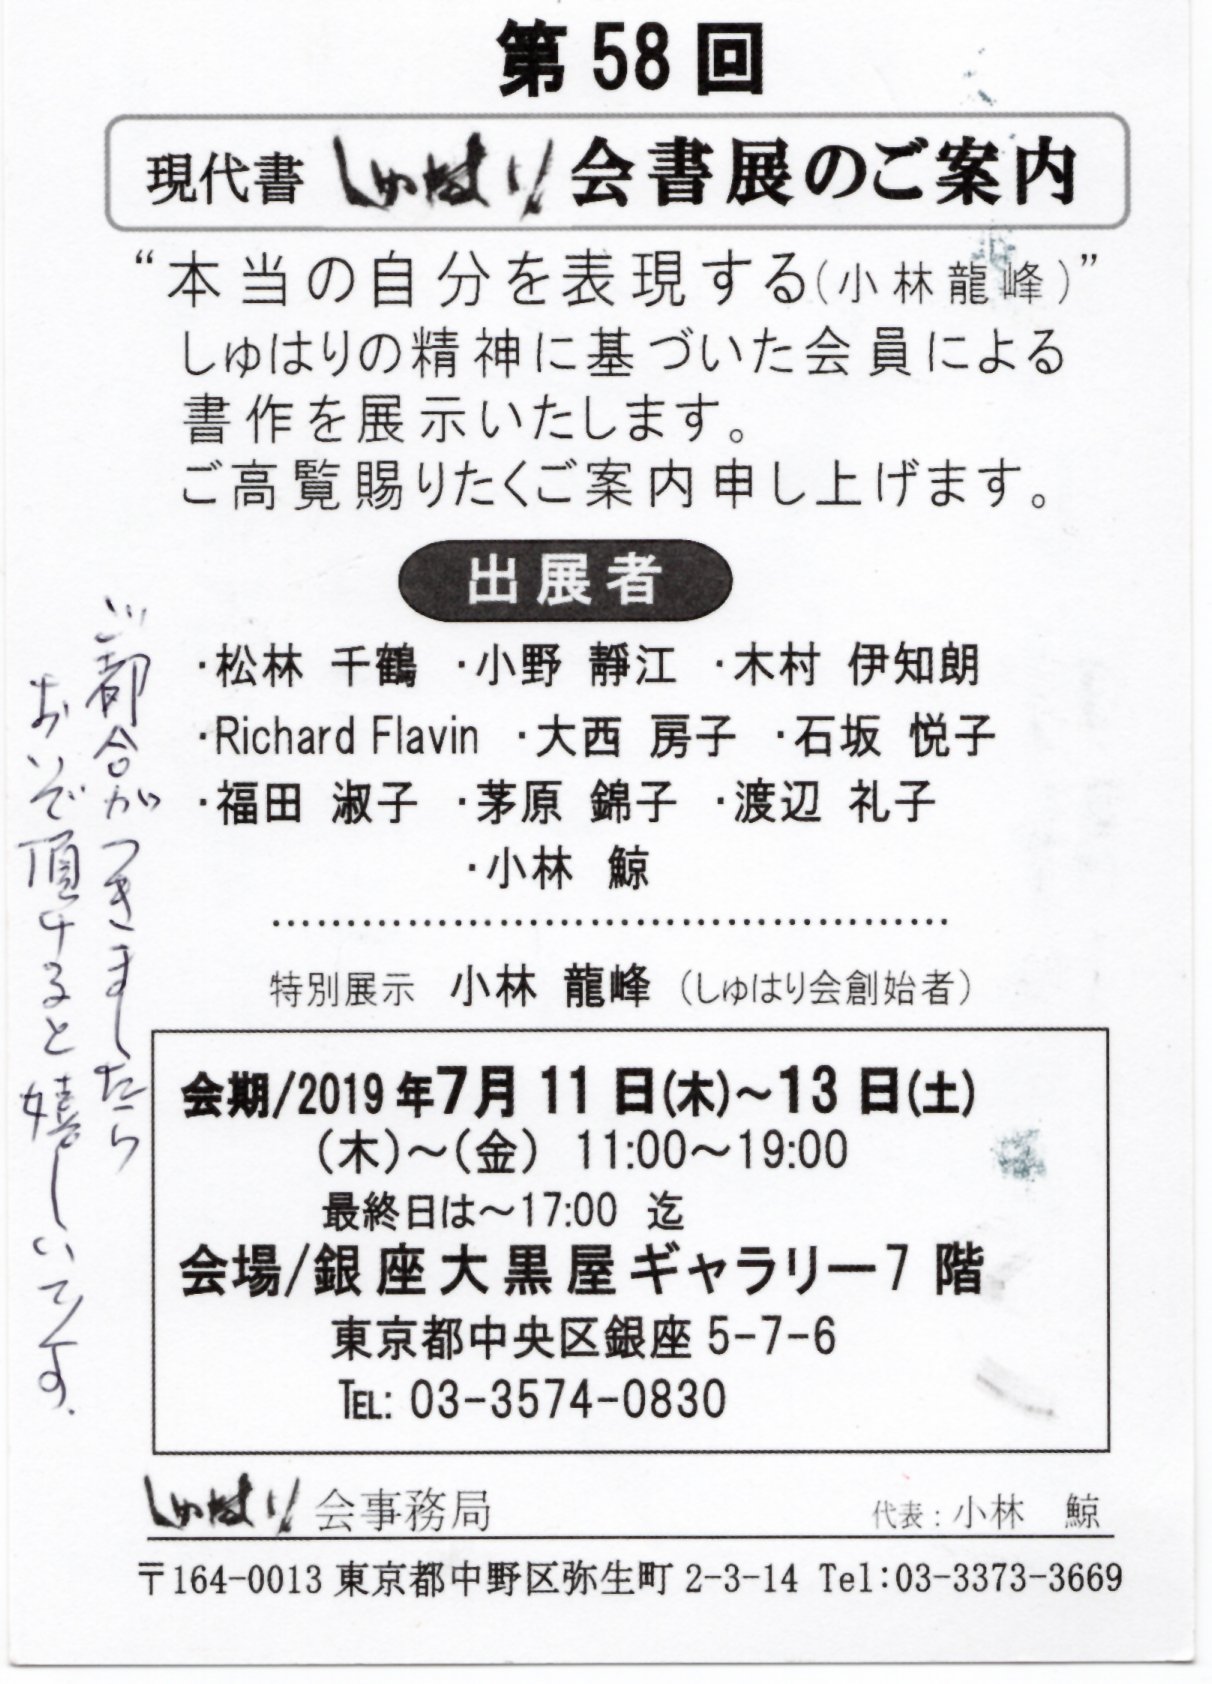 第58回
現代書 しゅはり会書展のご案内
“本当の自分を表現する(小林龍峰)”
しゅはりの精神に基づいた会員による
書作を展示いたします。
ご高覧賜りたくご案内申し上げます。
出展者
・松林 千鶴 ・小野 靜江 ・木村 伊知朗
・Richard Flavin ・大西 房子 ・石坂 悦子
・福田 淑子 ・茅原 錦子 ・渡辺 礼子
・小林 鯨
特別展示 小林 龍峰 (しゅはり会創始者)
会期/2019年7月11日(木)~13日(土)
(木)~(金) 11:00~19:00
最終日は~17:00 迄
会場/銀座大黒屋ギャラリー7階
東京都中央区銀座5-7-6
TEL: 03-3574-0830
しゅはり会事務局 代表:小林 鯨
〒164-0013 東京都中野区弥生町2-3-14 Tel:03-3373-3669
ご都合がつきましたら
おいで頂けると嬉しいです.